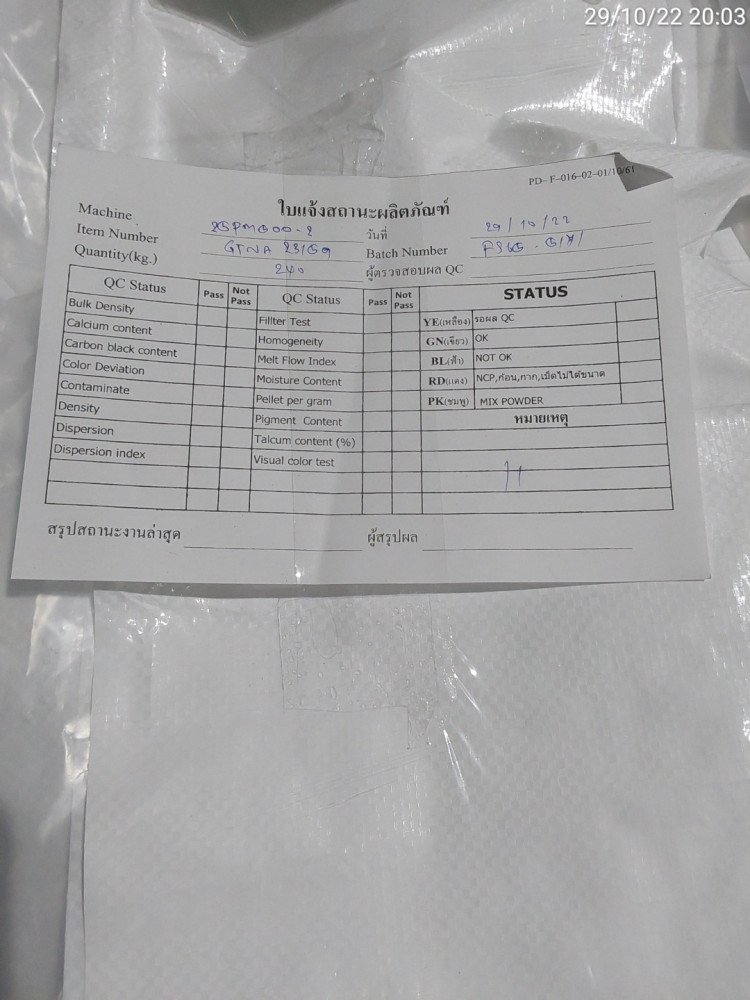 29/10/22 20:03
PD-F-016-02-01/10/61
ใบแจ้งสถานะผลิตภัณฑ์
Machine
วันที่ 29/10/22
Item Number GTNA
Batch Number
Quantity(kg.) 240
ผู้ตรวจสอบผล QC
QC Status Pass Not Pass QC Status Pass Not Pass STATUS
Bulk Density Fillter Test YE(เหลือง) รอผล QC
Calcium content Homogeneity GN(เขียว) OK
Carbon black content Melt Flow Index BL(ฟ้า) NOT OK
Color Deviation Moisture Content RD(แดง) NCP,ก้อน,กาก,เม็ดไม่ได้ขนาด
Contaminate Pellet per gram PK(ชมพู) MIX POWDER
Density Pigment Content หมายเหตุ
Dispersion Talcum content (%)
Dispersion index Visual color test
สรุปสถานะงานล่าสุด ผู้สรุปผล